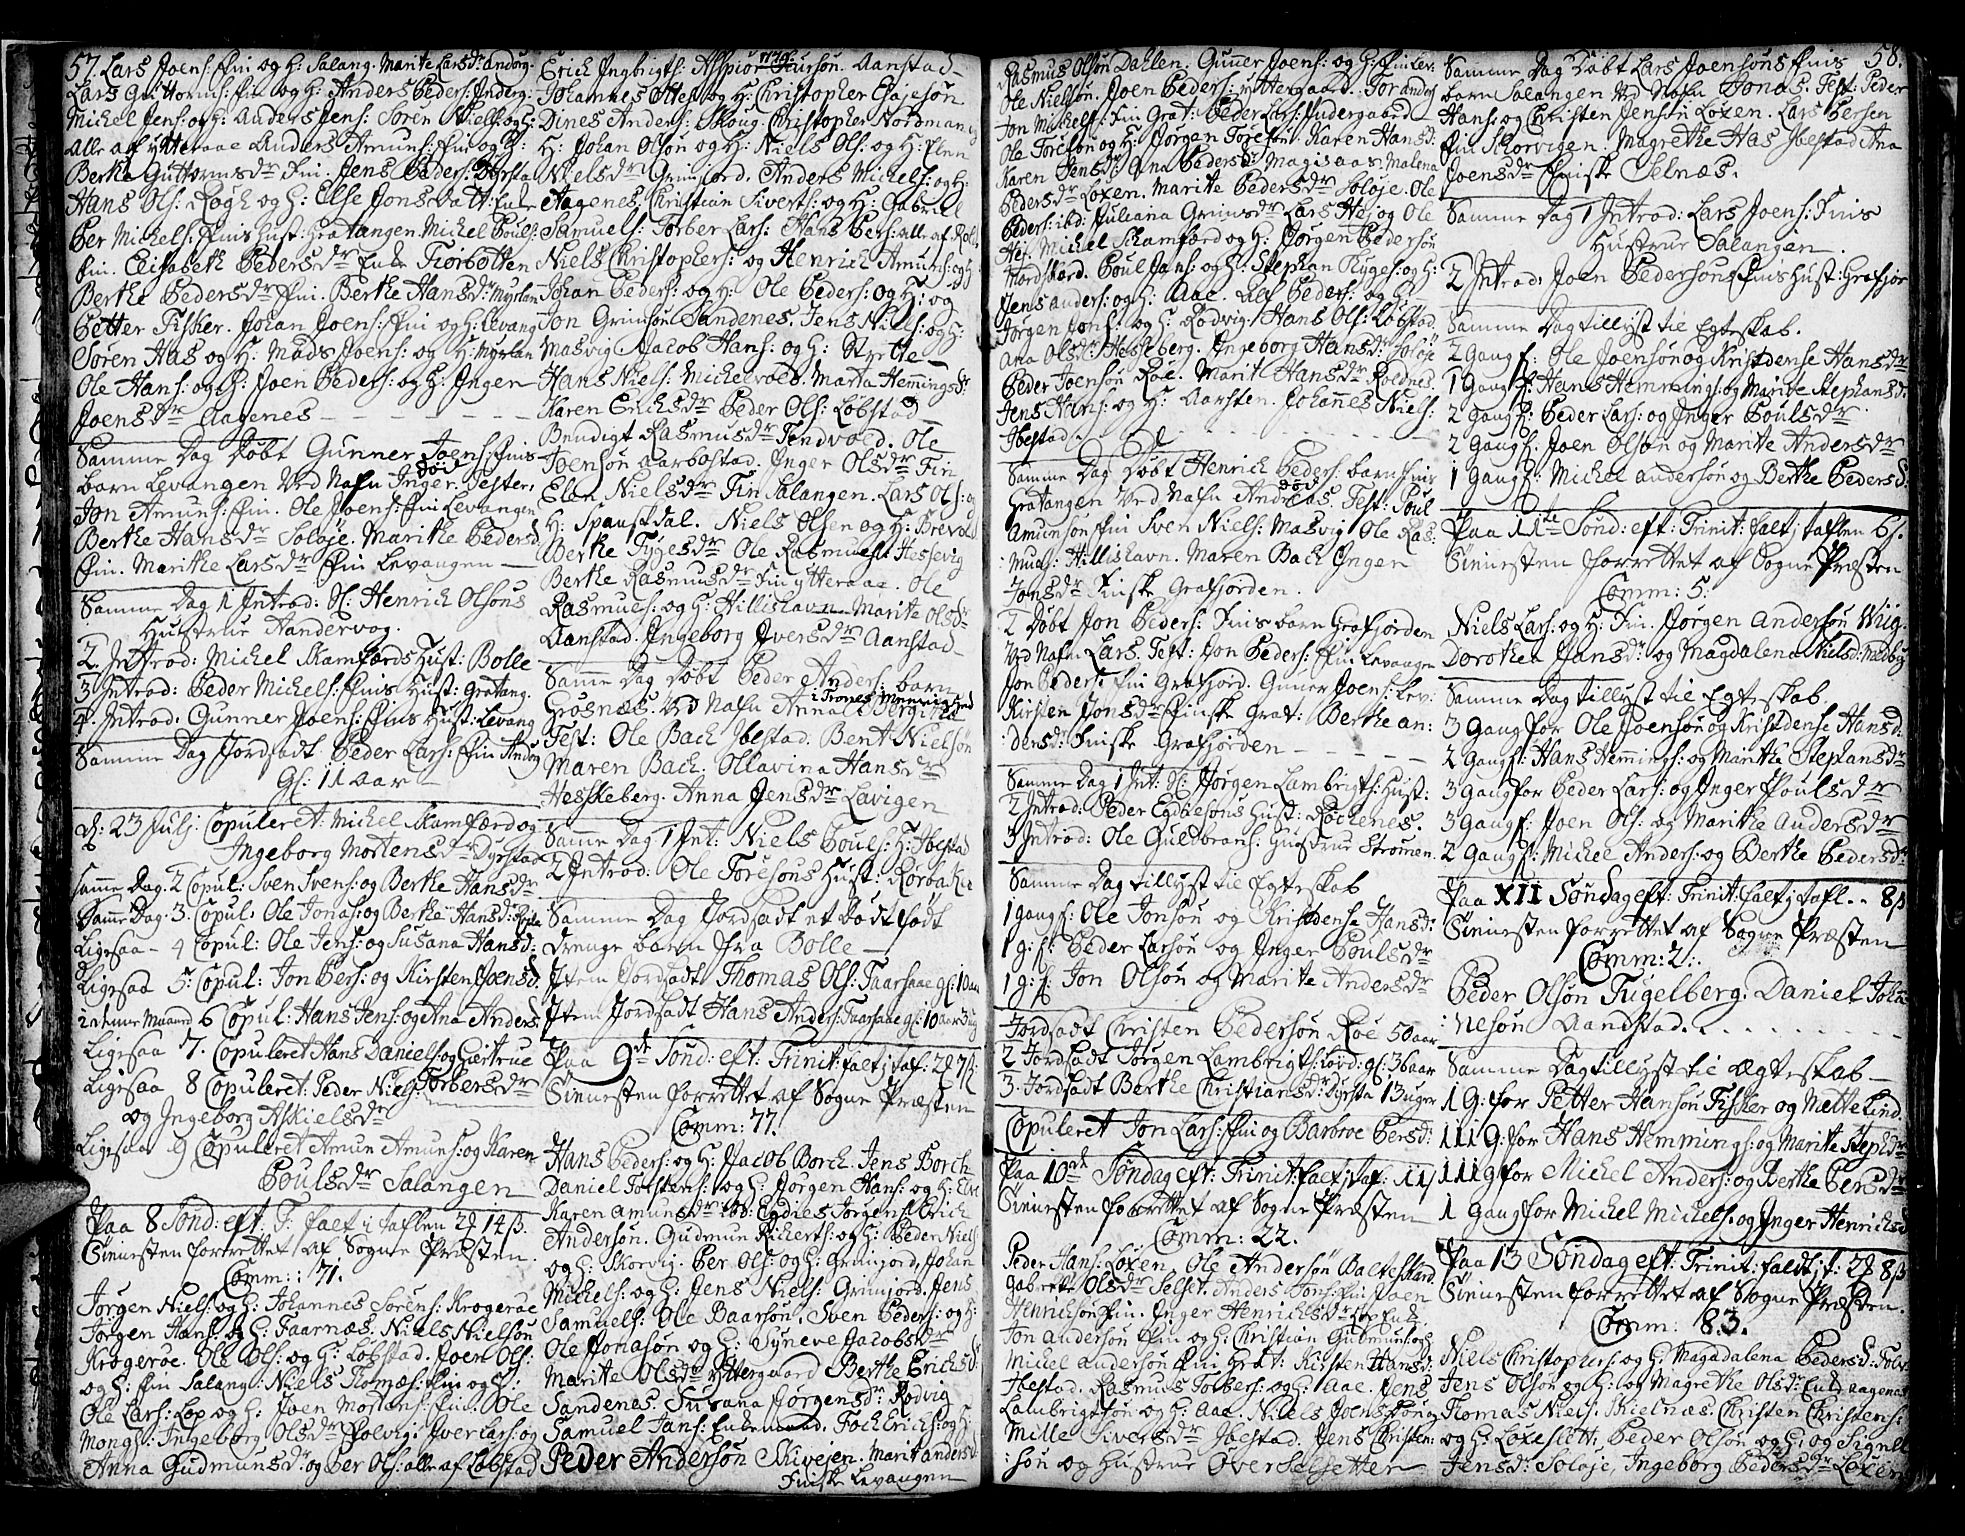 57. Lars Joens: Fin og H: Salang. Marite Larsdr: Anderg.
Lars Guttorms: Fin og H: Anders Peders: Inderg:
Michel Jens: og H: Anders Jens: Søren Niels: og H:
Alle af ytteraae Anders Amuns: Fin og H:
Berthe Guttormsdr Fin. Jens Peders: Dyrsta
Hans Ols: Røgh og H: Else Jonsdatt: Enke
Per Michels: Finis Hust: Gratangen Michel Pouls:
Fin. Elisabeth Pedersdr Enke Fiorbotten
Berthe Pedersdr Fin. Berthe Hansdr Myrlan
Petter Fisker. Johan Joens: Fin og H: Levang
Søren Has og H: Mads Joens: og H: Myrlan
Ole Hans: og H: Joen Peders: og H: Ingen
Joensdr Aagenes
Samme Dag Døbt Gunner Joens: Finis
barn Levangen Ved Nafn Inger. død Tester,
Jon Amuns: Fin. Ole Joens: Fin Levangen
Berthe Hansdr Soløje. Marithe Pedersd
Fin. Marithe Larsdr Fin Levangen
Samme Dag 1 Introd: Sl: Henrich Olsøns
Hustrue Aandervog.
2. Introd: Michel Skamfærds Hust: Bolle
3 Introd: Peder Michels: Finis Hust: Gratang.
4. Introd: Gunner Joens: Finis Hust: Levang
Samme Dag Jordfadt Peder Lars: Fin Anderg
Gl: 11 aar
d: 23 Julj Copuleret: Michel Skamfærd og
Ingeborg Mortensdr Dyrstad
Samme Dag. 2 Copul: Sven Svens: og Berthe Hansdr
Samme Dag 3. Copul: Ole Jonas: og Berthe Hansd:
Ligesaa 4 Copul: Ole Jens: og Susana Hansd:
Ligesaa 5 Copul: Jon Pers: og Kirsten Joensd.
i denne Maaned 6 Copul: Hans Jens: og Ana Andersd:
Ligesaa 7. Copuleret Hans Daniels: og Giertrue
Torbersdr
Ligesaa 8 Copuleret: Peder Niels:
og Ingeborg Askielsdr
Ligesaa 9 Copuleret Amun Amuns: og Karen
Poulsdr Salangen
Paa 8 Sønd: eft: T: falt i taflen 2 14 ß.
Tienesten forrettet af Sogne Præsten.
Comm: 71.
Jørgen Niels: og H: Johannes Sørens: Krogerøe
Jørgen Hans: og H: Faarnæs. Niels Nielsøn
Krogerøe. Ole Ols: og H: Løbstad. Joen Ols:
og H: Fin Salang: Niels Thomæs: Fin og H:
Ole Lars: Lop og H: Joen Mortens: Fin. Ole
Mongs: Ingeborg Olsdr Iver Lars: og
Anna Gudmunsdr og Per Ols: alle af Løbstad
Erich Ingbrigts: Aspior Aanstad
Johannes Ottes: og H: Christopher
Dines Anders: Skoug. Christopher Nordman og
H: Johan Olsøn og H: Niels Ols: og H: Elen
Nielsdr Grimjord. Anders Michels: og H:
Aagenes. Christian Siverts: og H: Gabriel
Samuels: Torber Lars: Hans Pers: alle af Roll.
Niels Christophers: og Henrich Amuns: og H:
Johan Peders: og H: Ole Peders: og H: og
Jon Grimsøn Sandenes. Jens Niels: og H:
Masvig Jacob Hans: og H: Styrtte
Hans Niels: Michelvoes. Marta Hemmingsdr
Karen Erichsdr Peder Ols: Løbstad
Bendigt Rasmusdr Tendvoed. Ole
Joensøn Aarbostad. Inger Olsdr Fin
Elen Nielsdr Fin Salangen. Lars Ols: og
H: Spansdal. Niels Olsen og H: Brevold
Berthe Tygesdr Ole Rasmusøn Hessevig
Berthe Rasmusdr Fin ytteraae. Ole
Rasmues: og H: Hillishavn Marite Olsdr
Aanstad. Ingeborg Iversdr Aanstad
Samme Dag Døbt Peder Anders: barn
Grøsnæs. Ved Nafn Anna
Test: Ole Bach Ibestad. Bent Nielsøn
Maren Bach. Ollavina Hansdr
Hesseberg. Anna Jensdr Lavigen
Samme Dag 1 Int: Niels Pouls: H: Ibestad
2 Introd: Ole Toresøns Hust: Rørbakke
Samme Dag Jordfadt et Dødt født
drenge barn fra Bolle
Item Jordfadt Thomas Ols: Faarsaae gl: 10 aar
Item Jordfadt Hans Anders: Faarsaae gl: 10 aar 3 ug
Paa 9de Sønd: eft: Trinit: falt j taf: 2 7 ß.
Tienesten forrettet af Sogne Præsten
Comm: 77.
Hans Peders: og H: Jacob Borch. Jens Borch
Daniel Torstens: og H: Jørgen Hans: og H: Else
Karen Amunsdr ibd: Egdies Jørgens: Erich
Andersøn. Gudmun Richerts: og H: Peder Niels
og H: Skorvig. Per Ols: og H: Grimjord, Johan
Michels: og H: Jens Niels: Grimjord. Jens
Samuels: Ole Baarsøn. Sven Peders: og H:
Ole Jonasøn og H: Syneve Jacobsdr
Marite Olsdr yttergaard Berthe Erichsd
Sandenes. Susana Jørgensdr Rodvig
Samuel Jans: Foch Erichs: og H:
Peder Andersøn Skivejen. Marit Andersd
Finske Levangen
Rasmus Olsøn Dahlen. Gunner Joens: og H: Fin Lev.
Ole Nielsøn. Joen Peders: yttergaard. Tor Anders
Jon Michels: Fin Grat: Peder Lars: Indergaard
Ole Toresøn og H: Jørgen Toresøn. Karen Hansd:
Karen Jensdr Ana Pedersd: Magisaas. Malena
Pedersdr Loxen. Marite Pedersdr Soløje. Ole
Peders: ibd: Juliana Grimsdr Lars Hej og Ole
Hej. Michel Skamfærd og H: Jørgen Pedersøn
Nordstærd. Poul Jans: og H: Stephan Ryges: og H:
Jens Anders: og H: Aae. Alf Peders: og H:
Jørgen Jons: og H: Rodvig. Hans Ols: Løbstad.
Ana Olsdr: Hesseberg. Ingeborg Hansdr Soløje
Peder Joensøn Røe. Marit Hansdr Roednes.
Jens Hans: og H: Aarsten. Johannes Niels:
Ibestad.
Samme Dag Døbt Henrich Peders: barn Finis
Gratangen Ved Nafn Andreas. død Test: Poul
Amunsøn Fin Sven Niels: Masvig Ole Ras:
mues: Hillishavn. Maren Bach Ingen
Jonsdr Finske Grafjorden.
2 Døbt Jon Peders: Finis barn Grafjorden
Ved Nafn Lars. Test: Jon Peders: Fin Levangen
Jon Peders: Fin Grafjord. Gunner Joens: Lev:
Kirsten Jonsdr Finske Grat: Berthe An:
densd: Finske Grafjorden
Samme Dag 1 Int: Sl: Jørgen Lambrigts: Hust:
2 Introd: Peder Egdiesøns Hust: Rochenes.
3 Introd: Ole Guldbrans: Hustrue Strømen.
Samme Dag tillyst til Egteskab
1 gang f: Ole Jonsøn og Kristdense Hansd:
1 g: f: Peder Larsøn og Inger Poulsdr
1 g: f: Jon Olsøn og Marite Andersdr
Jordfadt Christen Pedersøn Røe 50 aar
2 Jordfadt Jørgen Lambrigts: Løvd: gl: 36 aar
3. Jordfadt Berthe Christiansdr Dyrsta 13 uger
Copuleret Jon Lars: Fin og Barbroe Persd:
Paa 10de Søndag eft: Trinit: falt j taf. 11
Tienesten forrettet af Sogne Præsten
Comm: 22.
Peder Hans: Loxen. Ole Andersøn Baltestaard.
Gabrette Olsdr Selset. Anders Jons: Fin Joen
Henrichsøn Fin. Inger Henrichsdr Hoy Enk:
Jon Andersøn Fin og H: Christian Gudmuns: og H:
Michel Andersøn Fin Grat: Kirsten Hansd:
Ibestad. Rasmus Torbers: og H: Aae. Jens
Lambrigtsøn og H: Aae. Niels Joensøn og
Mille Siversdr Ibestad. Jens Christen:
søn og Hustrue Overselsetter
58.
Samme Dag Døbt Lars Joensøns Finis
barn Salangen Ved Nafn Jonas. Test: Peder
Hans: og Christen Jensøn Loxen. Lars Persen
Fin Skorvigen. Magrethe Has Ibestad Ana
Joensdr Finske Selnæs.
Samme Dag 1 Introd: Lars Joens: Finis
Hustrue Salangen.
2 Introd: Joen Pedersøns Finis Hust: Grafjor
Samme Dag tillyst til Egteskab.
2 Gang f: Ole Joensøn og Kristdense Hansdr
1 Gang f: Hans Hemmings: og Marite Stephansd:
2 Gang f: Peder Lars: og Inger Poulsdr
2 Gang f: Joen Olsøn og Marite Andersdr
1 Gang f: Michel Andersøn og Berthe Pedersd:
Paa 11te Sønd: eft: Trinit: falt j taflen 6 ß.
Tienesten forrettet af Sogne Præsten
Comm: 5.
Niels Lars: og H: Fin. Jørgen Andersøn Wiig.
Dorothea Jansdr og Magdalena Nielsd: Nordbye
Samme Dag tillyst til Egteskab
3 Gang for Ole Joensøn og Kristdense Hansd:
2 Gang f: Hans Hemmings: og Marithe Stephansdr
3 Gang for Peder Lars: og Inger Poulsdr
3 Gang f: Joen Ols: og Marithe Andersdr
2 Gang f: Michel Anders: og Berthe Pedersdr
Paa XII Søndag eft: Trinit: falt j tafl. 8 ß
Tienesten forrettet af Sogne Præsten
Comm: 2.
Peder Olsøn Fugelberg. Daniel Johan:
nesøn Aandstad.
Samme Dag tillyst til Ægteskab
1 G: for Petter Hansøn Fisker og Mette Lind.
111 G: for Hans Hemmings: og Marite Stephdr
111 g for Michel Anders: og Berthe Persdr
1 Gang for Michel Michels: og Inger Henrichsd
Paa 13 Søndag eft: Trinit: faldt j t: 2 8 ß
Tienesten forrettet af Sogne Præsten.
Comm: 83.
Niels Christophers: og H: Magadalena Pedersd:
Jens Olsøn og H: og Magrethe Olsdr Enke Aagenæs
Thomas Niels: Skielnæs. Christen Christens:
og H: Loxeslett. Peder Olsøn og H: og Signel
Jensd: Soløje, Ingeborg Pedersdr Loxen